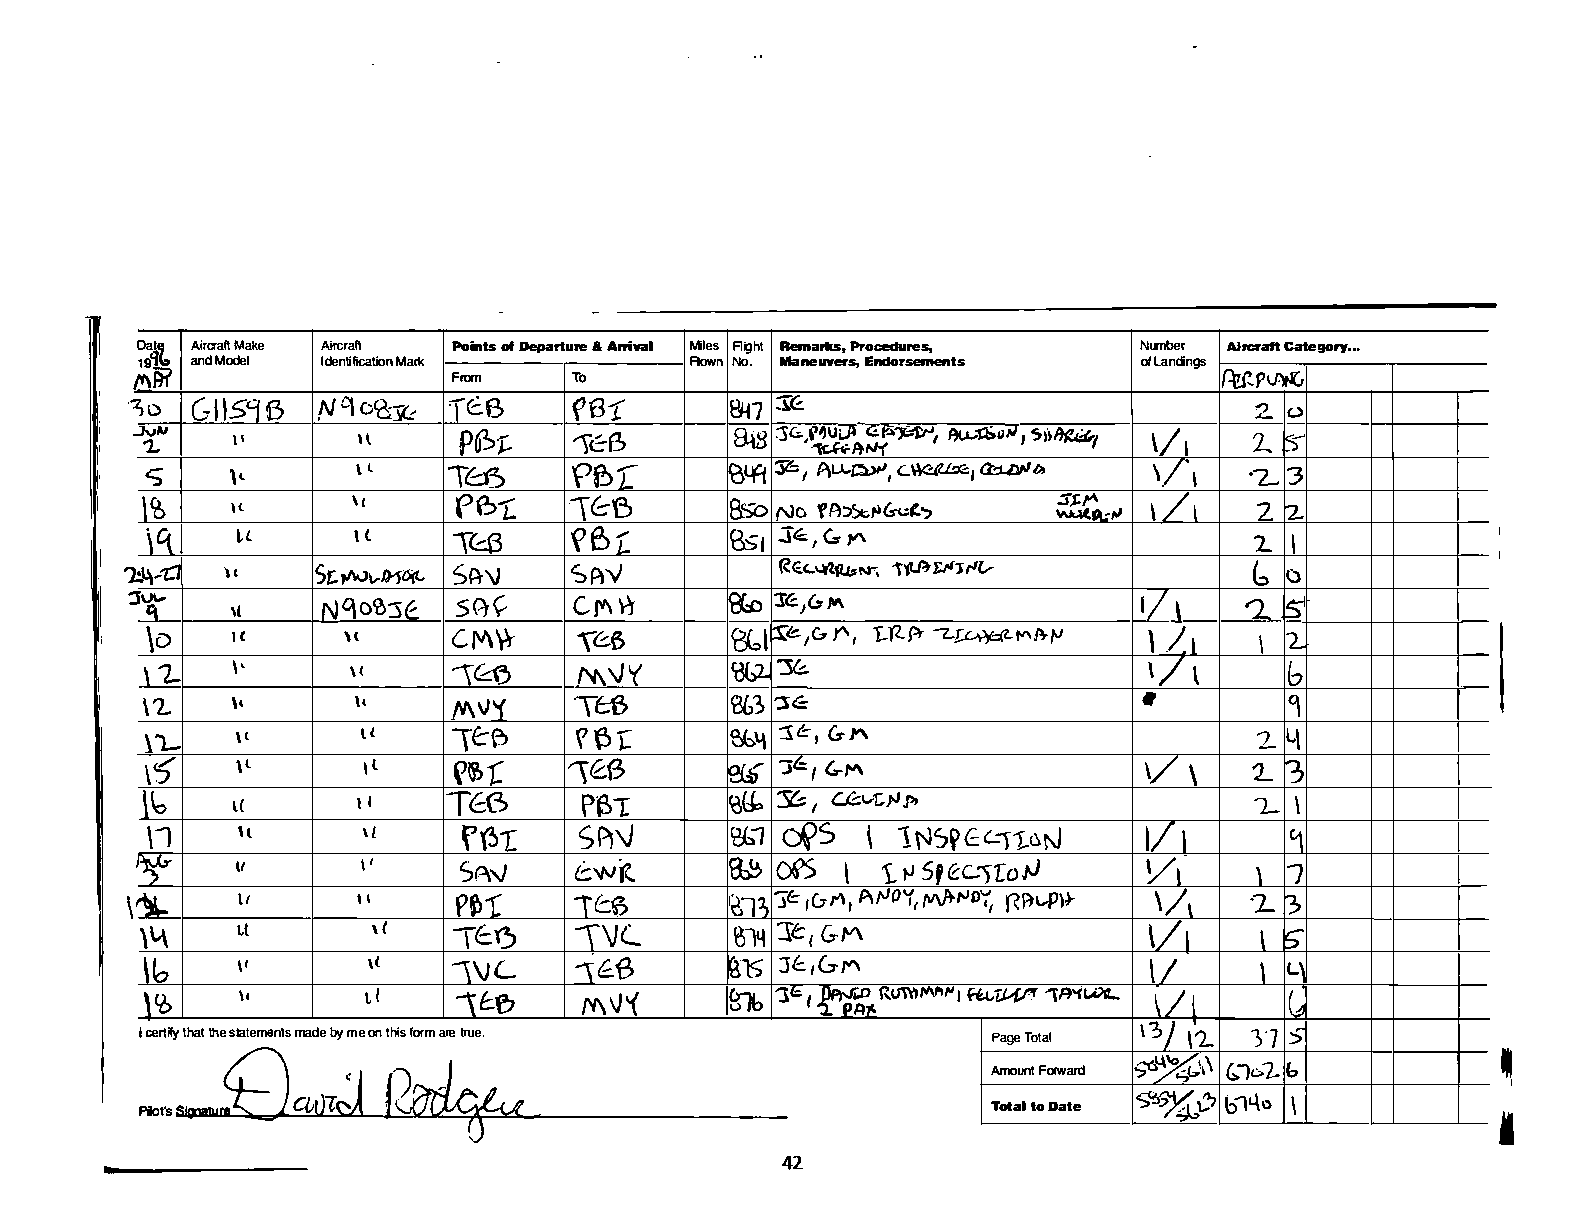 Date Aircraft Make Aircraft Points of Departure & Arrival Miles Flight Remarks, Procedures, Number Aircraft Category...
1996 and Model Identification Mark Flown No. Maneuvers, Endorsements of Landings
MAY From To AIRPLANE
30 G1159B N908JE TEB PBI 847 JE 2 0
JUN
2 " " PBI TEB 848 JE, PAULA EPSTEIN, ALLISON, 1/1 2 5
TIFFANY
5 " " TEB PBI 849 JE, ALLISON, 1/1 2 3
18 " " PBI TEB 850 NO PASSENGERS JIM 1/1 2 2
19 " " TEB PBI 851 JE, GM 2 1
24-27 " SIMULATOR SAV SAV RECURRENT TRAINING 6 0
JUL
9 " N908JE SAF CMH 860 JE, GM 1/1 2 5
10 " " CMH TEB 861 JE, GM, IRA ZICHERMAN 1/1 1 2
12 " " TEB MVY 862 JE 1/1 6
12 " " MVY TEB 863 JE 9
12 " " TEB PBI 864 JE, GM 2 4
15 " " PBI TEB 865 JE, GM 1/1 2 3
16 " " TEB PBI 866 JE, CELINA 2 1
17 " " PBI SAV 867 OPS 1 INSPECTION 1/1 9
AUG
3 " " SAV EWR 869 OPS 1 INSPECTION 1/1 1 7
" " PBI TEB 873 JE, GM, ANDY, MANDY, RALPH 1/1 2 3
14 " " TEB TVC 874 JE, GM 1/1 1 5
16 " " TVC TEB 875 JE, GM 1/ 1 4
18 " " TEB MVY 876 JE, DAVID ROTHMAN, FELICIA TAYLOR 1/1 6
2 PAX
I certify that the statements made by me on this form are true. Page Total 13/12 37 5
Amount Forward 5846/5611 6702 6
Pilot's Signature David Rodgers Total to Date 5859/5623 6740 1
42